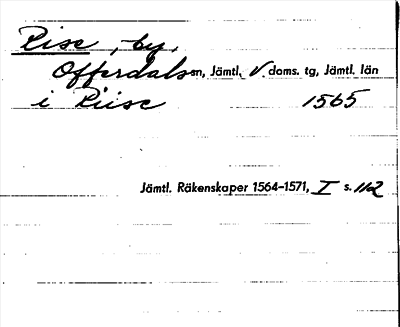 Rise, by,
Offerdals sn, Jämtl. V. doms. tg, Jämtl. län
i Riise 1565
Jämtl. Räkenskaper 1564–1571, I s. 112